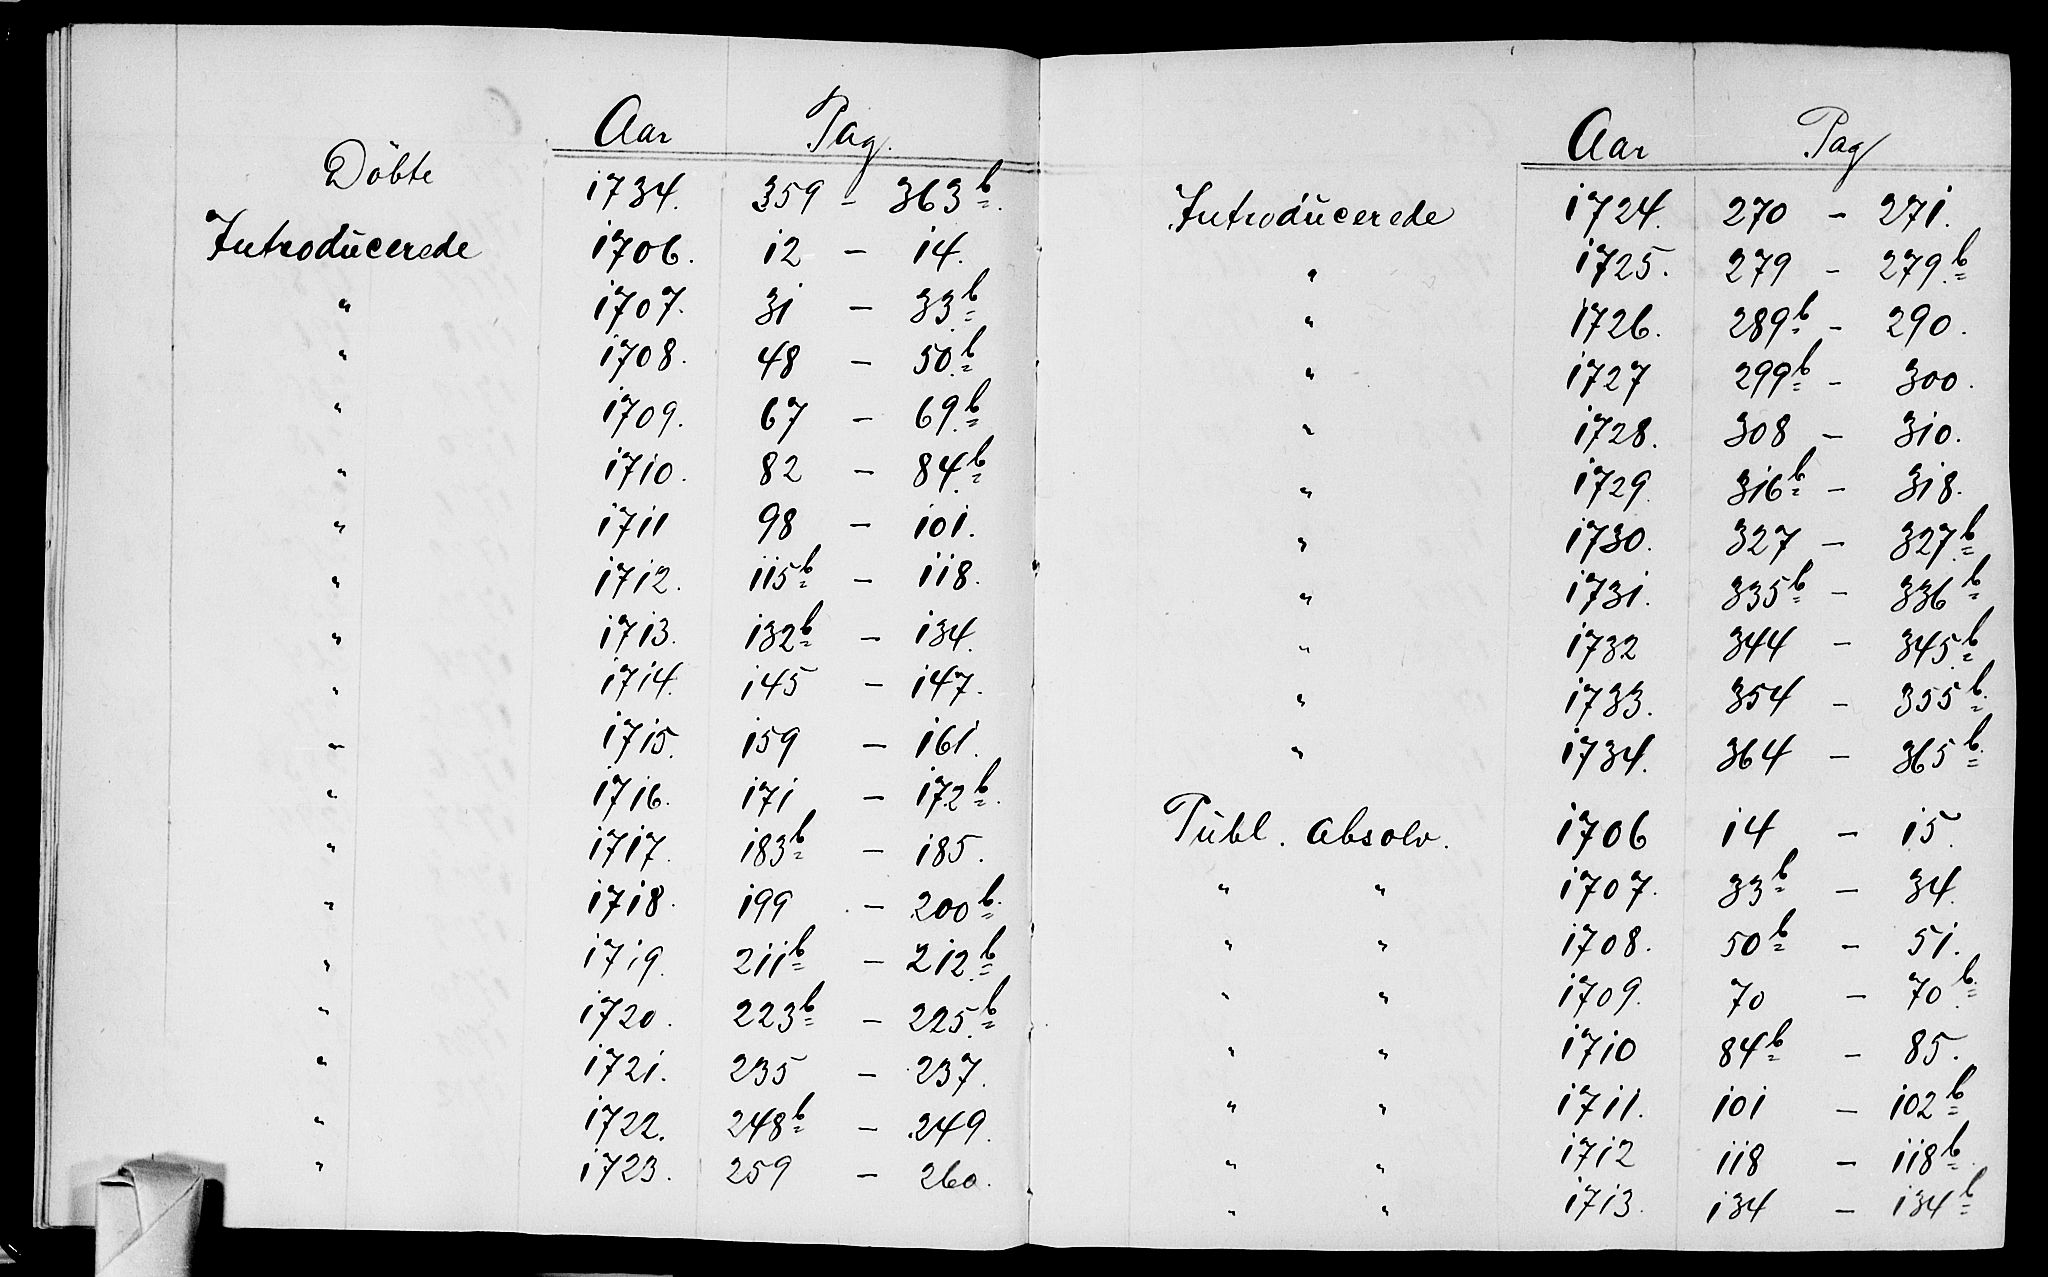 Aar Pag.
Döbte 1734. 359 - 363b.
Introducerede 1706. 12 - 14.
" 1707. 31 - 33b
" 1708. 48 - 50.b
" 1709. 67 - 69.b
" 1710. 82 - 84.b
" 1711 98 - 101.
" 1712. 115b - 118.
" 1713. 132b - 134.
" 1714. 145 - 147.
" 1715. 159 - 161.
" 1716. 171 - 172b.
" 1717. 183b - 185.
" 1718. 199 - 200b.
" 1719. 211b - 212b
" 1720. 223b - 225.b
" 1721. 235 - 237.
" 1722. 248b - 249.
" 1723. 259 - 260.
Aar Pag
Introducerede 1724. 270 - 271.
" 1725. 279 - 279.b
" 1726. 289b - 290.
" 1727 299b - 300.
" 1728. 308 - 310.
" 1729. 316b - 318.
" 1730. 327 - 327b.
" 1731. 335b - 336b
" 1732 344 - 345.b
" 1733. 354 - 355b.
" 1734. 364 - 365b.
Publ. Absolv. 1706 14 - 15.
" " 1707. 33b - 34.
" " 1708. 50b - 51.
" " 1709. 70 - 70b.
" " 1710 84b - 85.
" " 1711. 101 - 102b
" " 1712 118 - 118b.
" " 1713. 134 - 134b